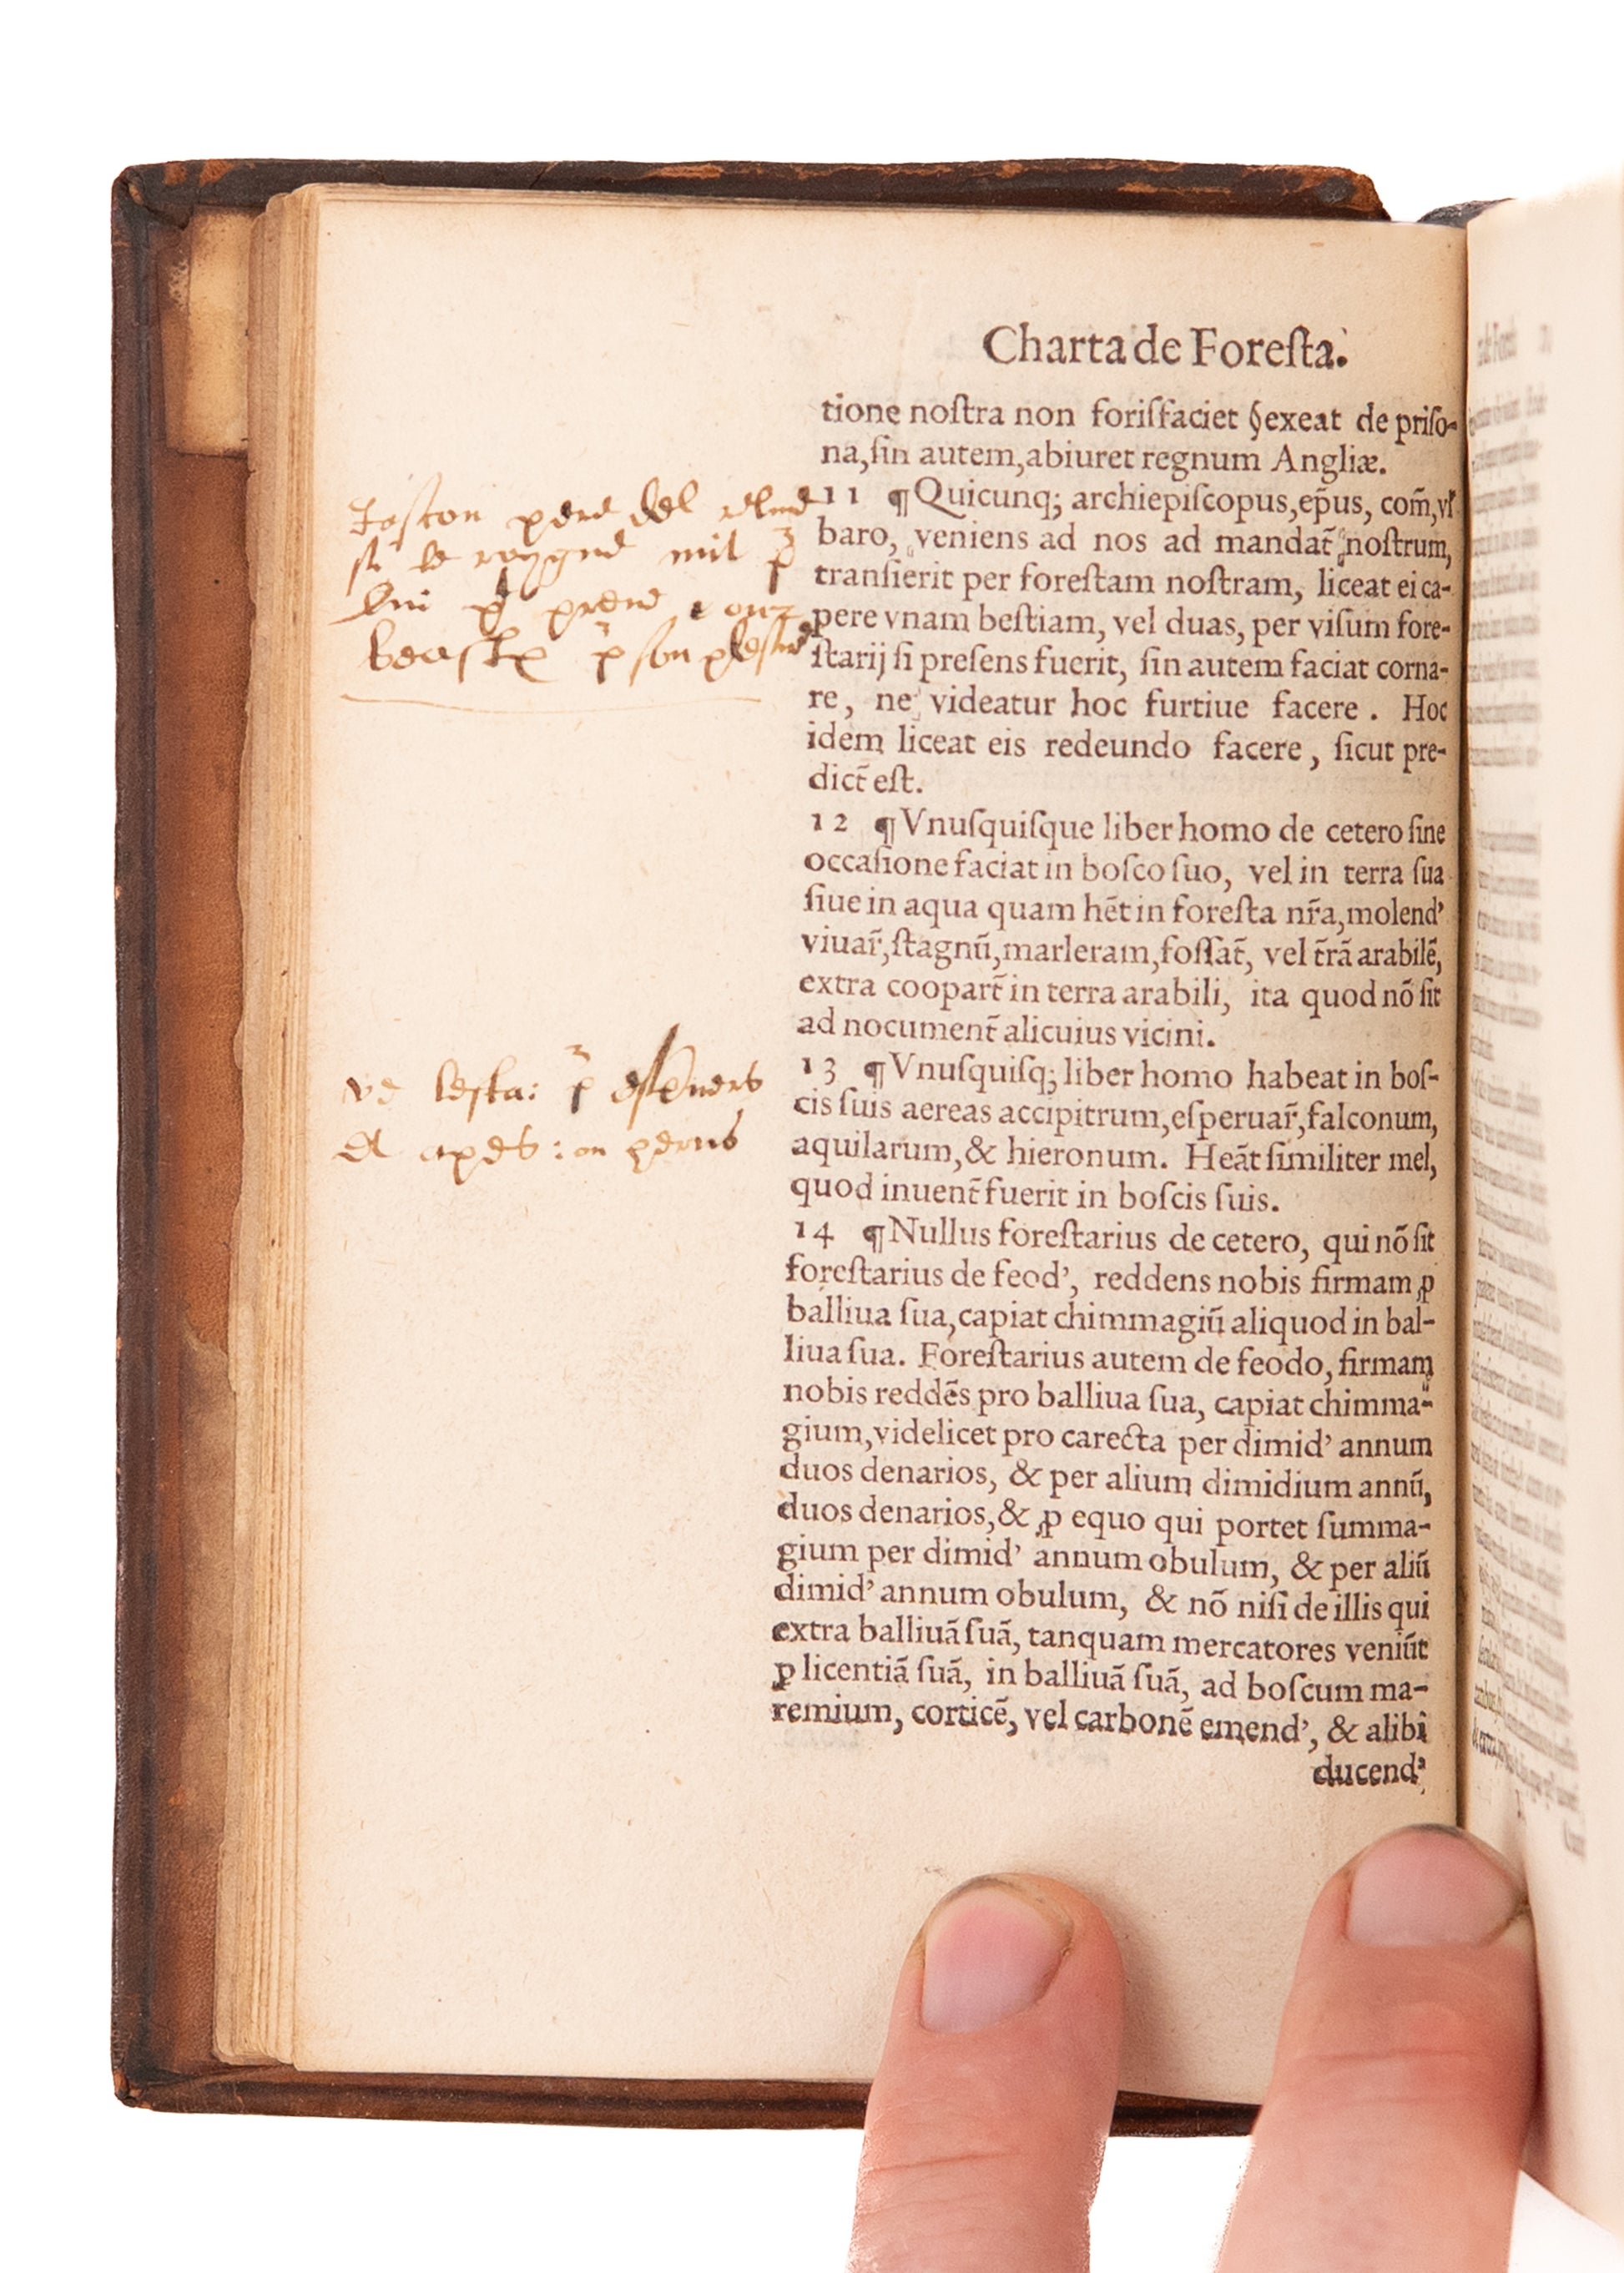 Charta de Foreſta.
tione noſtra non forisfaciet exeat de priſo-
na,ſin autem,abiuret regnum Angliæ.
11 ¶Quicunq; archiepiſcopus,ep̃us, com̃,vľ
baro, veniens ad nos ad mandat̃ noſtrum,
tranſierit per foreſtam noſtram, liceat ei ca-
pere vnam beſtiam, vel duas, per viſum fore-
ſtarij ſi preſens fuerit, ſin autem faciat corna-
re, ne videatur hoc furtiue facere. Hoc
idem liceat eis redeundo facere, ſicut pre-
dict̃ eſt.
12 ¶Vnuſquiſque liber homo de cetero ſine
occaſione faciat in boſco ſuo, vel in terra ſua
ſiue in aqua quam hẽt in foreſta nr̃a,molend’
viuar̃,ſtagnũ,marleram,foſſat̃, vel t̃rã arabilẽ,
extra coopart̃ in terra arabili, ita quod nõ ſit
ad nocument̃ alicuius vicini.
13 ¶Vnuſquiſq; liber homo habeat in boſ-
cis ſuis aereas accipitrum,eſperuar̃,falconum,
aquilarum,& hieronum. Heãt ſimiliter mel,
quod inuent̃ fuerit in boſcis ſuis.
14 ¶Nullus foreſtarius de cetero, qui nõ ſit
foreſtarius de feod’, reddens nobis firmam ꝓ
balliua ſua,capiat chimmagiũ aliquod in bal-
liua ſua. Foreſtarius autem de feodo, firmam
nobis reddẽs pro balliua ſua, capiat chimma-
gium,videlicet pro carecta per dimid’ annum
duos denarios, & per alium dimidium annũ,
duos denarios,& ꝓ equo qui portet ſumma-
gium per dimid’ annum obulum, & per aliũ
dimid’ annum obulum, & nõ niſi de illis qui
extra balliuã ſuã, tanquam mercatores veniũt
ꝑ licentiã ſuã, in balliuã ſuã, ad boſcum ma-
remium, corticẽ, vel carbonẽ emend’, & alibi
ducend’